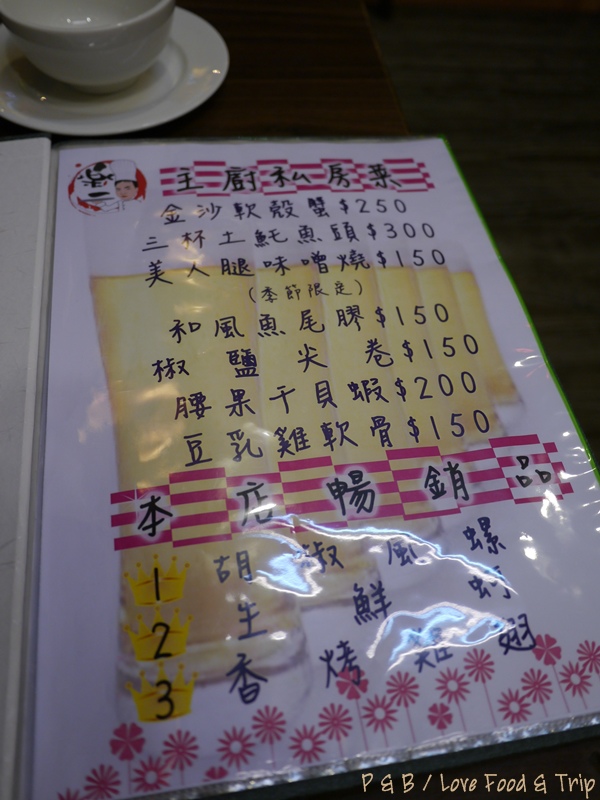 主廚私房菜
金沙軟殼蟹$250
三杯土魠魚頭$300
美人腿味噌燒$150
(季節限定)
和風魚尾膠$150
椒鹽尖卷$150
腰果干貝蝦$200
豆乳雞軟骨$150
本店暢銷品
1 胡椒風螺
2 生鮮蚵
3 香烤雞翅
P & B / Love Food & Trip